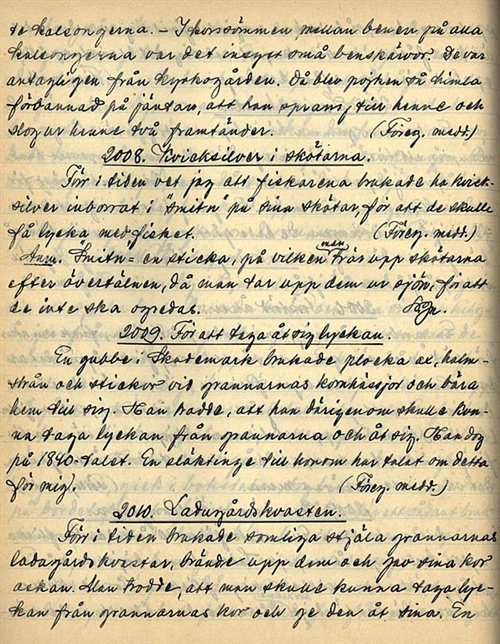 te kalsongerna. – I korssömmen mellan benen på alla
kalsongerna var det insytt små benskärvor. De var
antagligen från kyrkogården. Då blev pojken så himla
förbannad på jäntan, att han sprang till henne och
slog ur henne två framtänder. (Föreg. medd.)
2008. Kvicksilver i skötarna.
Förr i tiden vet jag att fiskarena brukade ha kvick-
silver inborrat i "smitn" på sina skötar, för att de skulle
få lycka med fisket. (Föreg. medd.)
Anm. Smitn = en sticka, på vilken man trär upp skötarna
efter övertälnen, då man tar upp dem ur sjön, för att
de inte ska oredas.
2009. För att taga åt sig lyckan.
En gubbe i Skademark brukade plocka ax, halm-
strån och stickor vid grannarnas kornhässjor och bära
hem till sig. Han trodde, att han därigenom skulle kun-
na taga lyckan från grannarna och åt sig. Han dog
på 1840-talet. En släktinge till honom har talat om detta
för mig. (Föreg. medd.)
2010. Ladugårdskvasten.
Förr i tiden brukade somliga stjäla grannarnas
ladugårdskvastar, brände upp dem och gav sina kor
askan. Man trodde, att man skulle kunna taga lyc-
kan från grannarnas kor och ge den åt sina. En